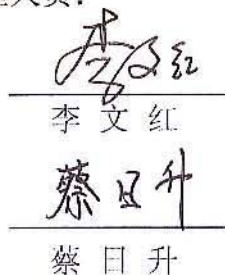 员：
李文红
李文红
蔡日升
蔡日升